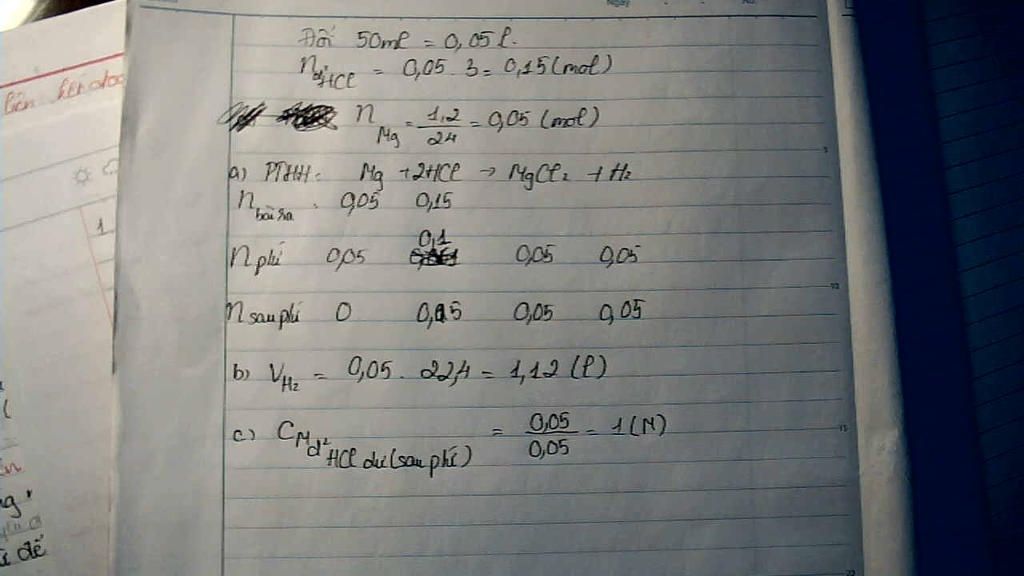 Đổi 50ml = 0,05 l.
n d² HCl = 0,05 . 3 = 0,15 (mol)
n Mg = 1,2 / 24 = 0,05 (mol)
a) PTHH: Mg + 2HCl → MgCl₂ + H₂
n bài ra : 0,05 0,15
n pứ 0,05 0,1 0,05 0,05
n sau pứ 0 0,05 0,05 0,05
b) V H₂ = 0,05 . 22,4 = 1,12 (l)
c) C M d² HCl dư (sau pứ) = 0,05 / 0,05 = 1 (M)
1.
đề